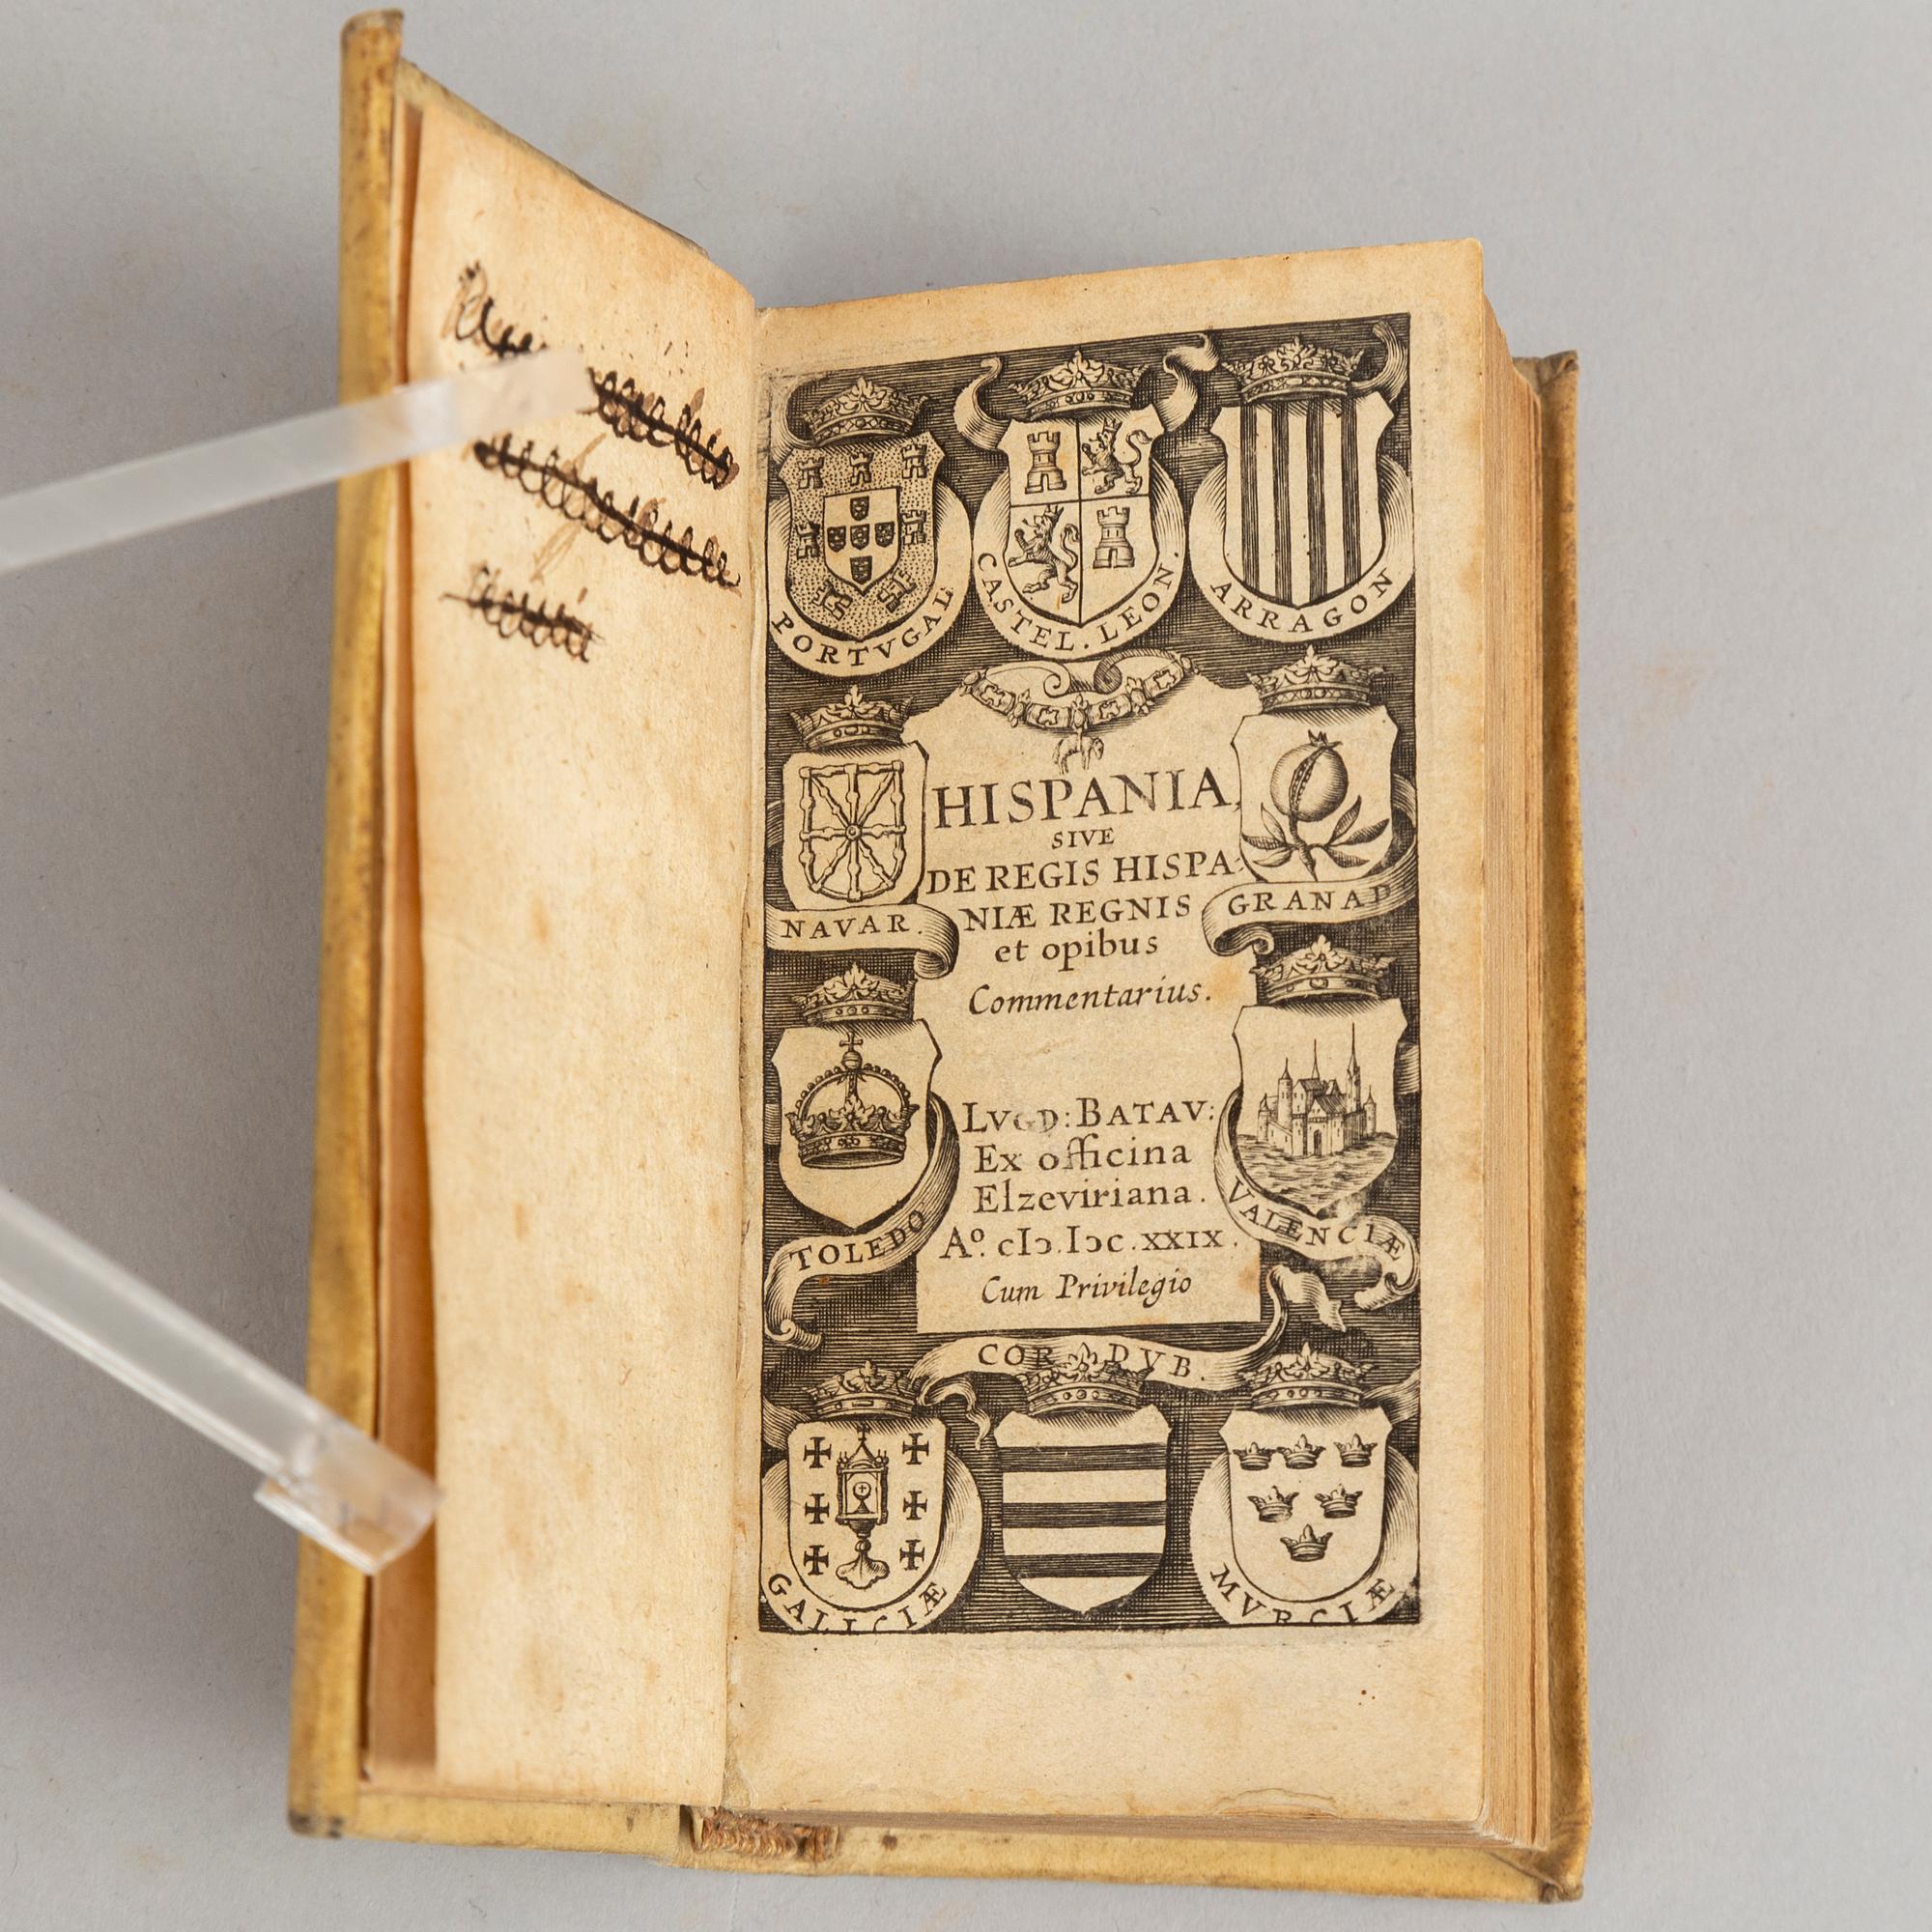 PORTVGAL
CASTEL. LEON.
ARRAGON
HISPANIA,
SIVE
DE REGIS HISPA-
NIÆ REGNIS
et opibus
Commentarius.
NAVAR.
GRANAD
TOLEDO
VALENCIÆ
LVGD: BATAV:
Ex officina
Elzeviriana.
Aº. cIↄ.Iↄc.xxix.
Cum Privilegio
CORDVB.
GALLCIÆ
MVRCIÆ